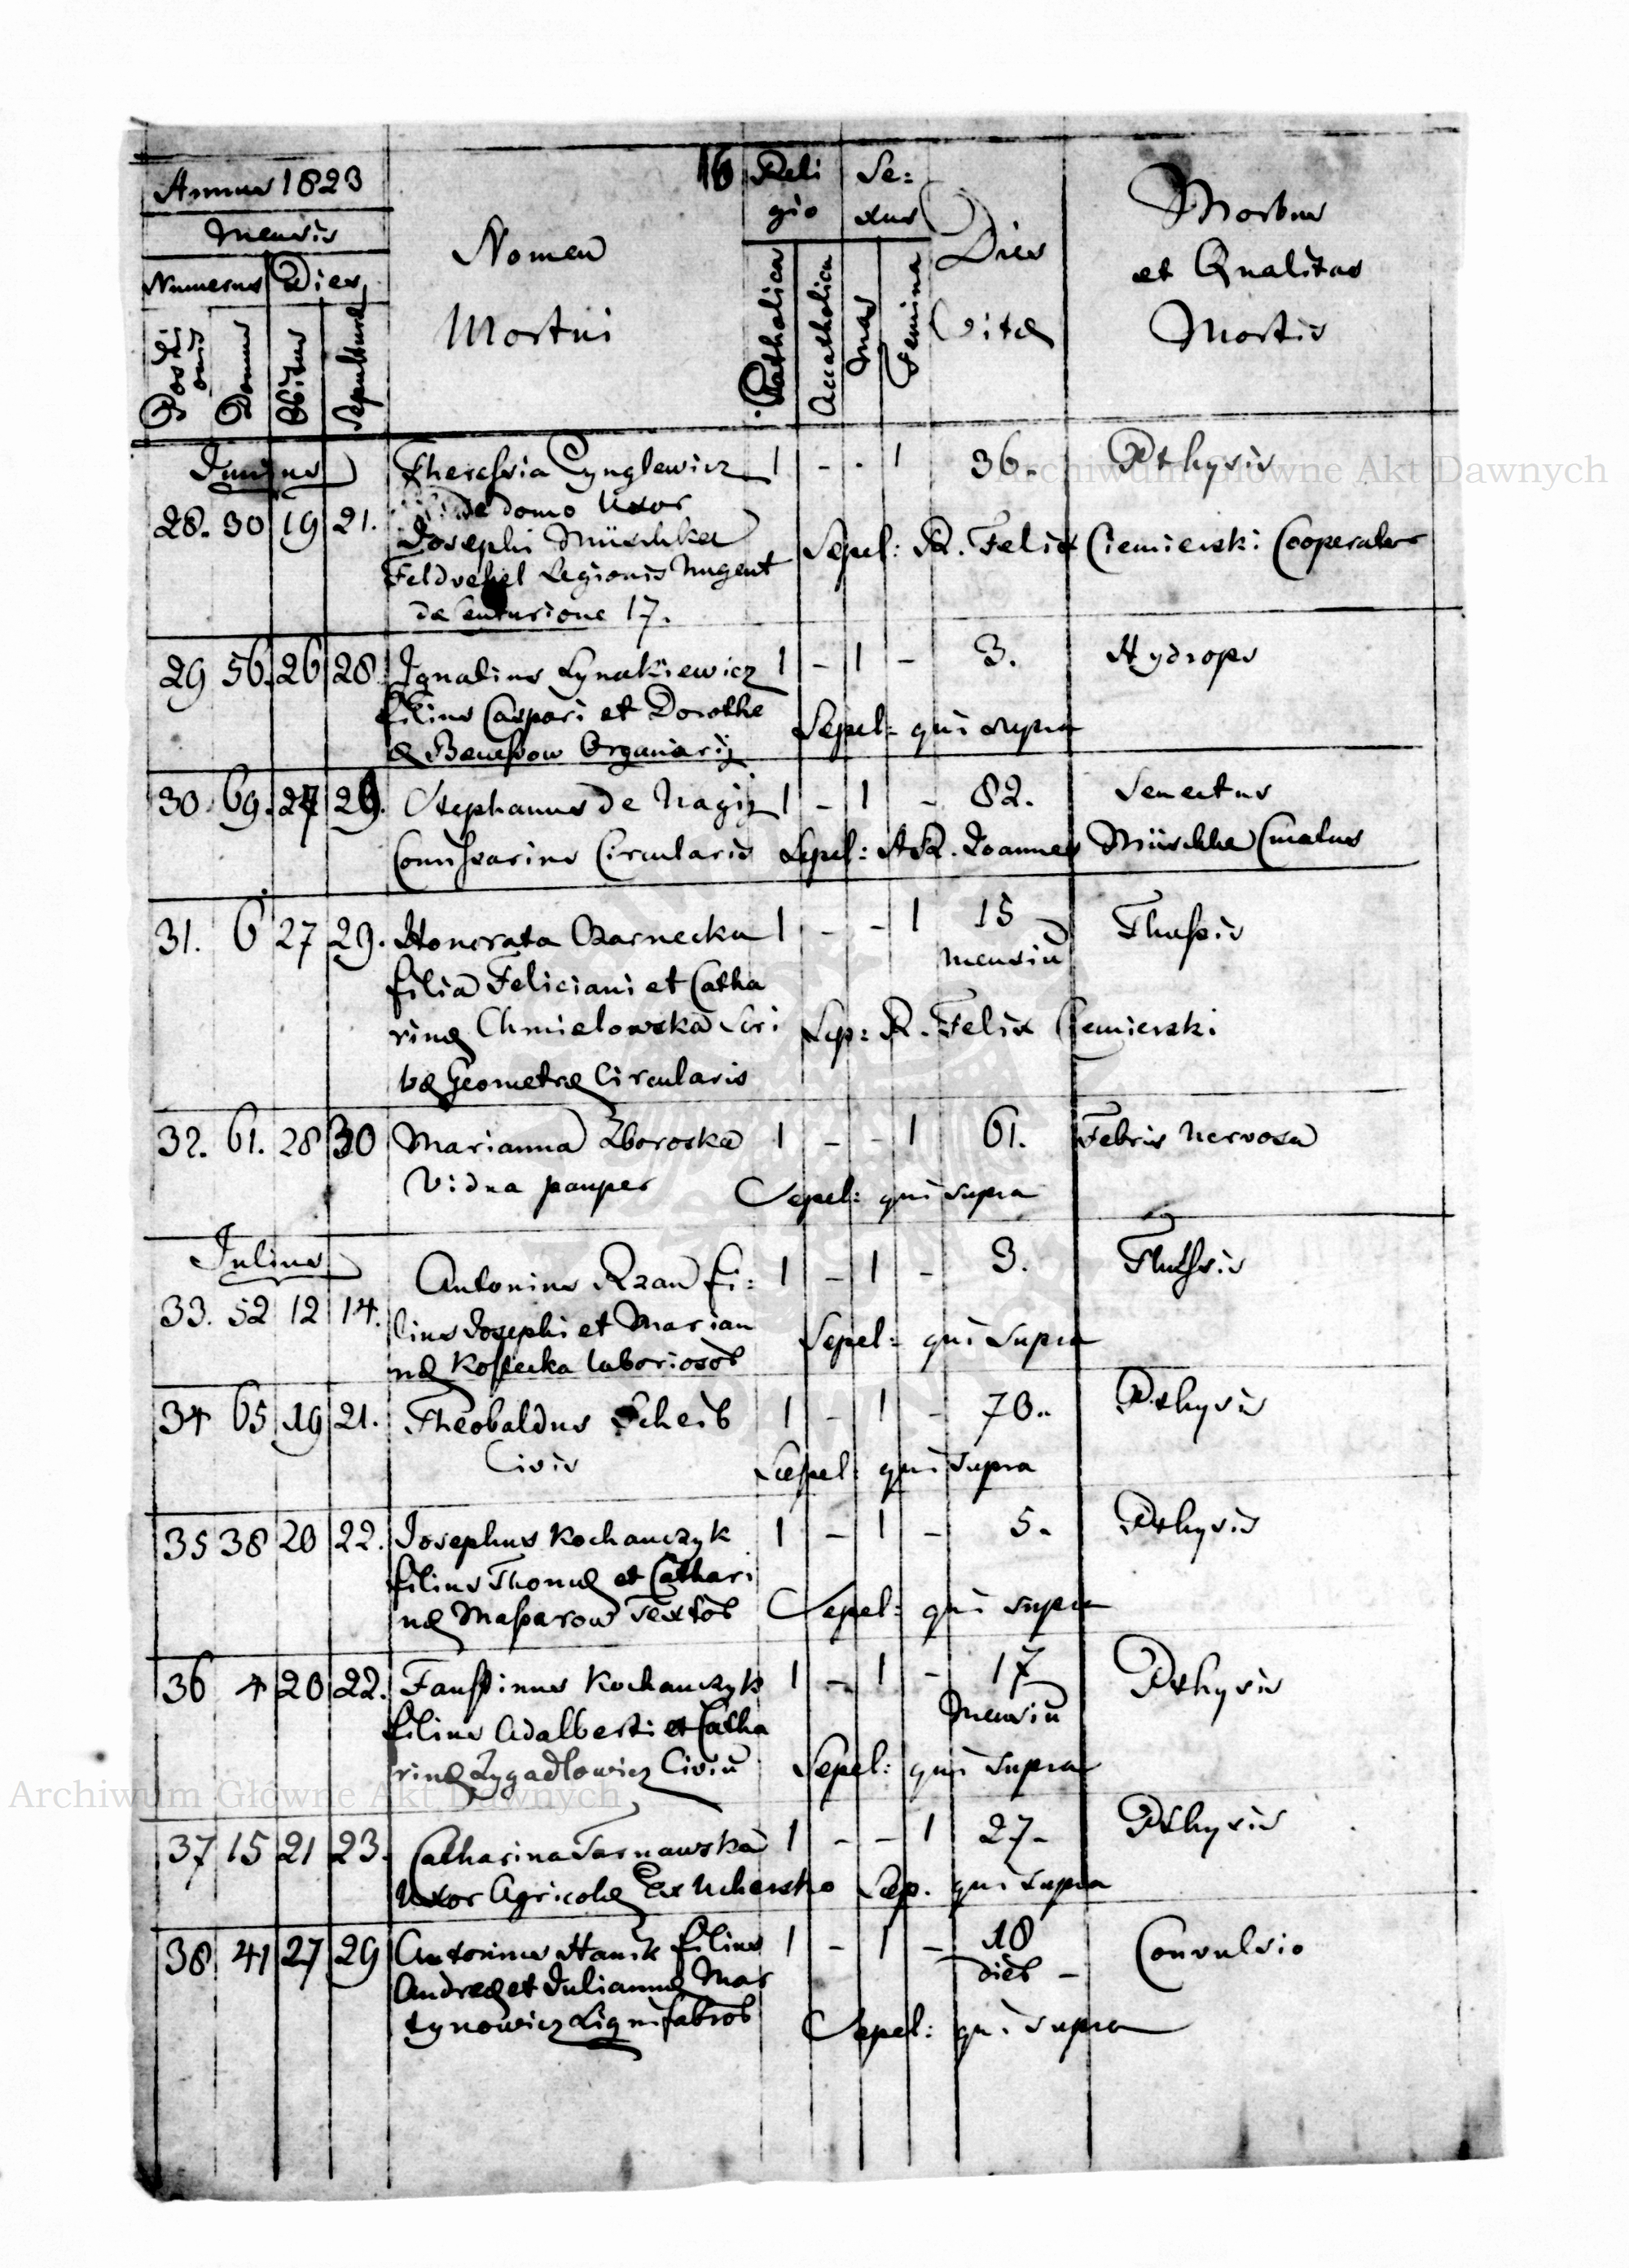 16
Annus 1823
Mensis
Numerus Dies
Positi
onis
Domus
Obitus
Sepulturæ
Nomen
Mortui
Reli
gio
Catholica
Accatholica
Se=
xus
Mas
Femina
Dies
Vitæ
Morbus
et Qualitas
Mortis
Archiwum Główne Akt Dawnych
Junius
28. 30 19 21. Theressia Cynglewicz 1 - - 1 36. Pthysis
de domo Uxor
Josephi Müschka
Feldvebel Legionis Nugent
de Centurione 17.
Sepel: R. Felix Ciemierski Cooperator
29 56. 26 28 Ignatius Lynakiewicz 1 - 1 - 3. Hydrops
filius Caspari et Dorothe
æ Benessow Organarij
Sepel: qui supra
30. 69. 27 29. Stephanus de Nagy 1 - 1 - 82. Senectus
Commissarius Circularis Sepel: AR. Joannes Müschka Curatus
31. 6 27 29. Honorata Czarnecka 1 - - 1 15
mensiu
filia Feliciani et Catha
rinæ Chmielowska Scri
bæ Geometræ Circularis
Sep: R. Felix Ciemierski
32. 61. 28 30 Marianna Zboroska 1 - - 1 61. Febris Nervosa
Vidua pauper Sepel: qui supra
Julius
33. 52 12 14. Antonius Rzan fi= 1 - 1 - 3.
lius Josephi et Marian
næ laborioso
Sepel: qui supra
34 65 19 21. Theobaldus Scheib 1 - 1 - 70. Pthysis
Civis Sepel: qui supra
35 38 20 22. Josephus Kochanczyk 1 - 1 - 5. Pthysis
filius Thomæ et Cathari
næ Massarow Textor
Sepel: qui supra
36 4 20 22. Faustinus Kochanczyk 1 - 1 - 17 Pthysis
mensiu
filius Adalberti et Catha
rinæ Zygadlowicz Civiu
Sepel: qui supra
Archiwum Główne Akt Dawnych
37 15 21 23. Catharina Tarnawska 1 - - 1 27- Pthysis
Uxor Agricolæ Ex Uhersko Sep. qui supra
38 41 27 29 Antonius Hanik filius 1 - 1 - 18 Convulsio
dies -
Andreæ et Juliannæ Mar
tynowicz Lignifabror
Sepel: qui supra